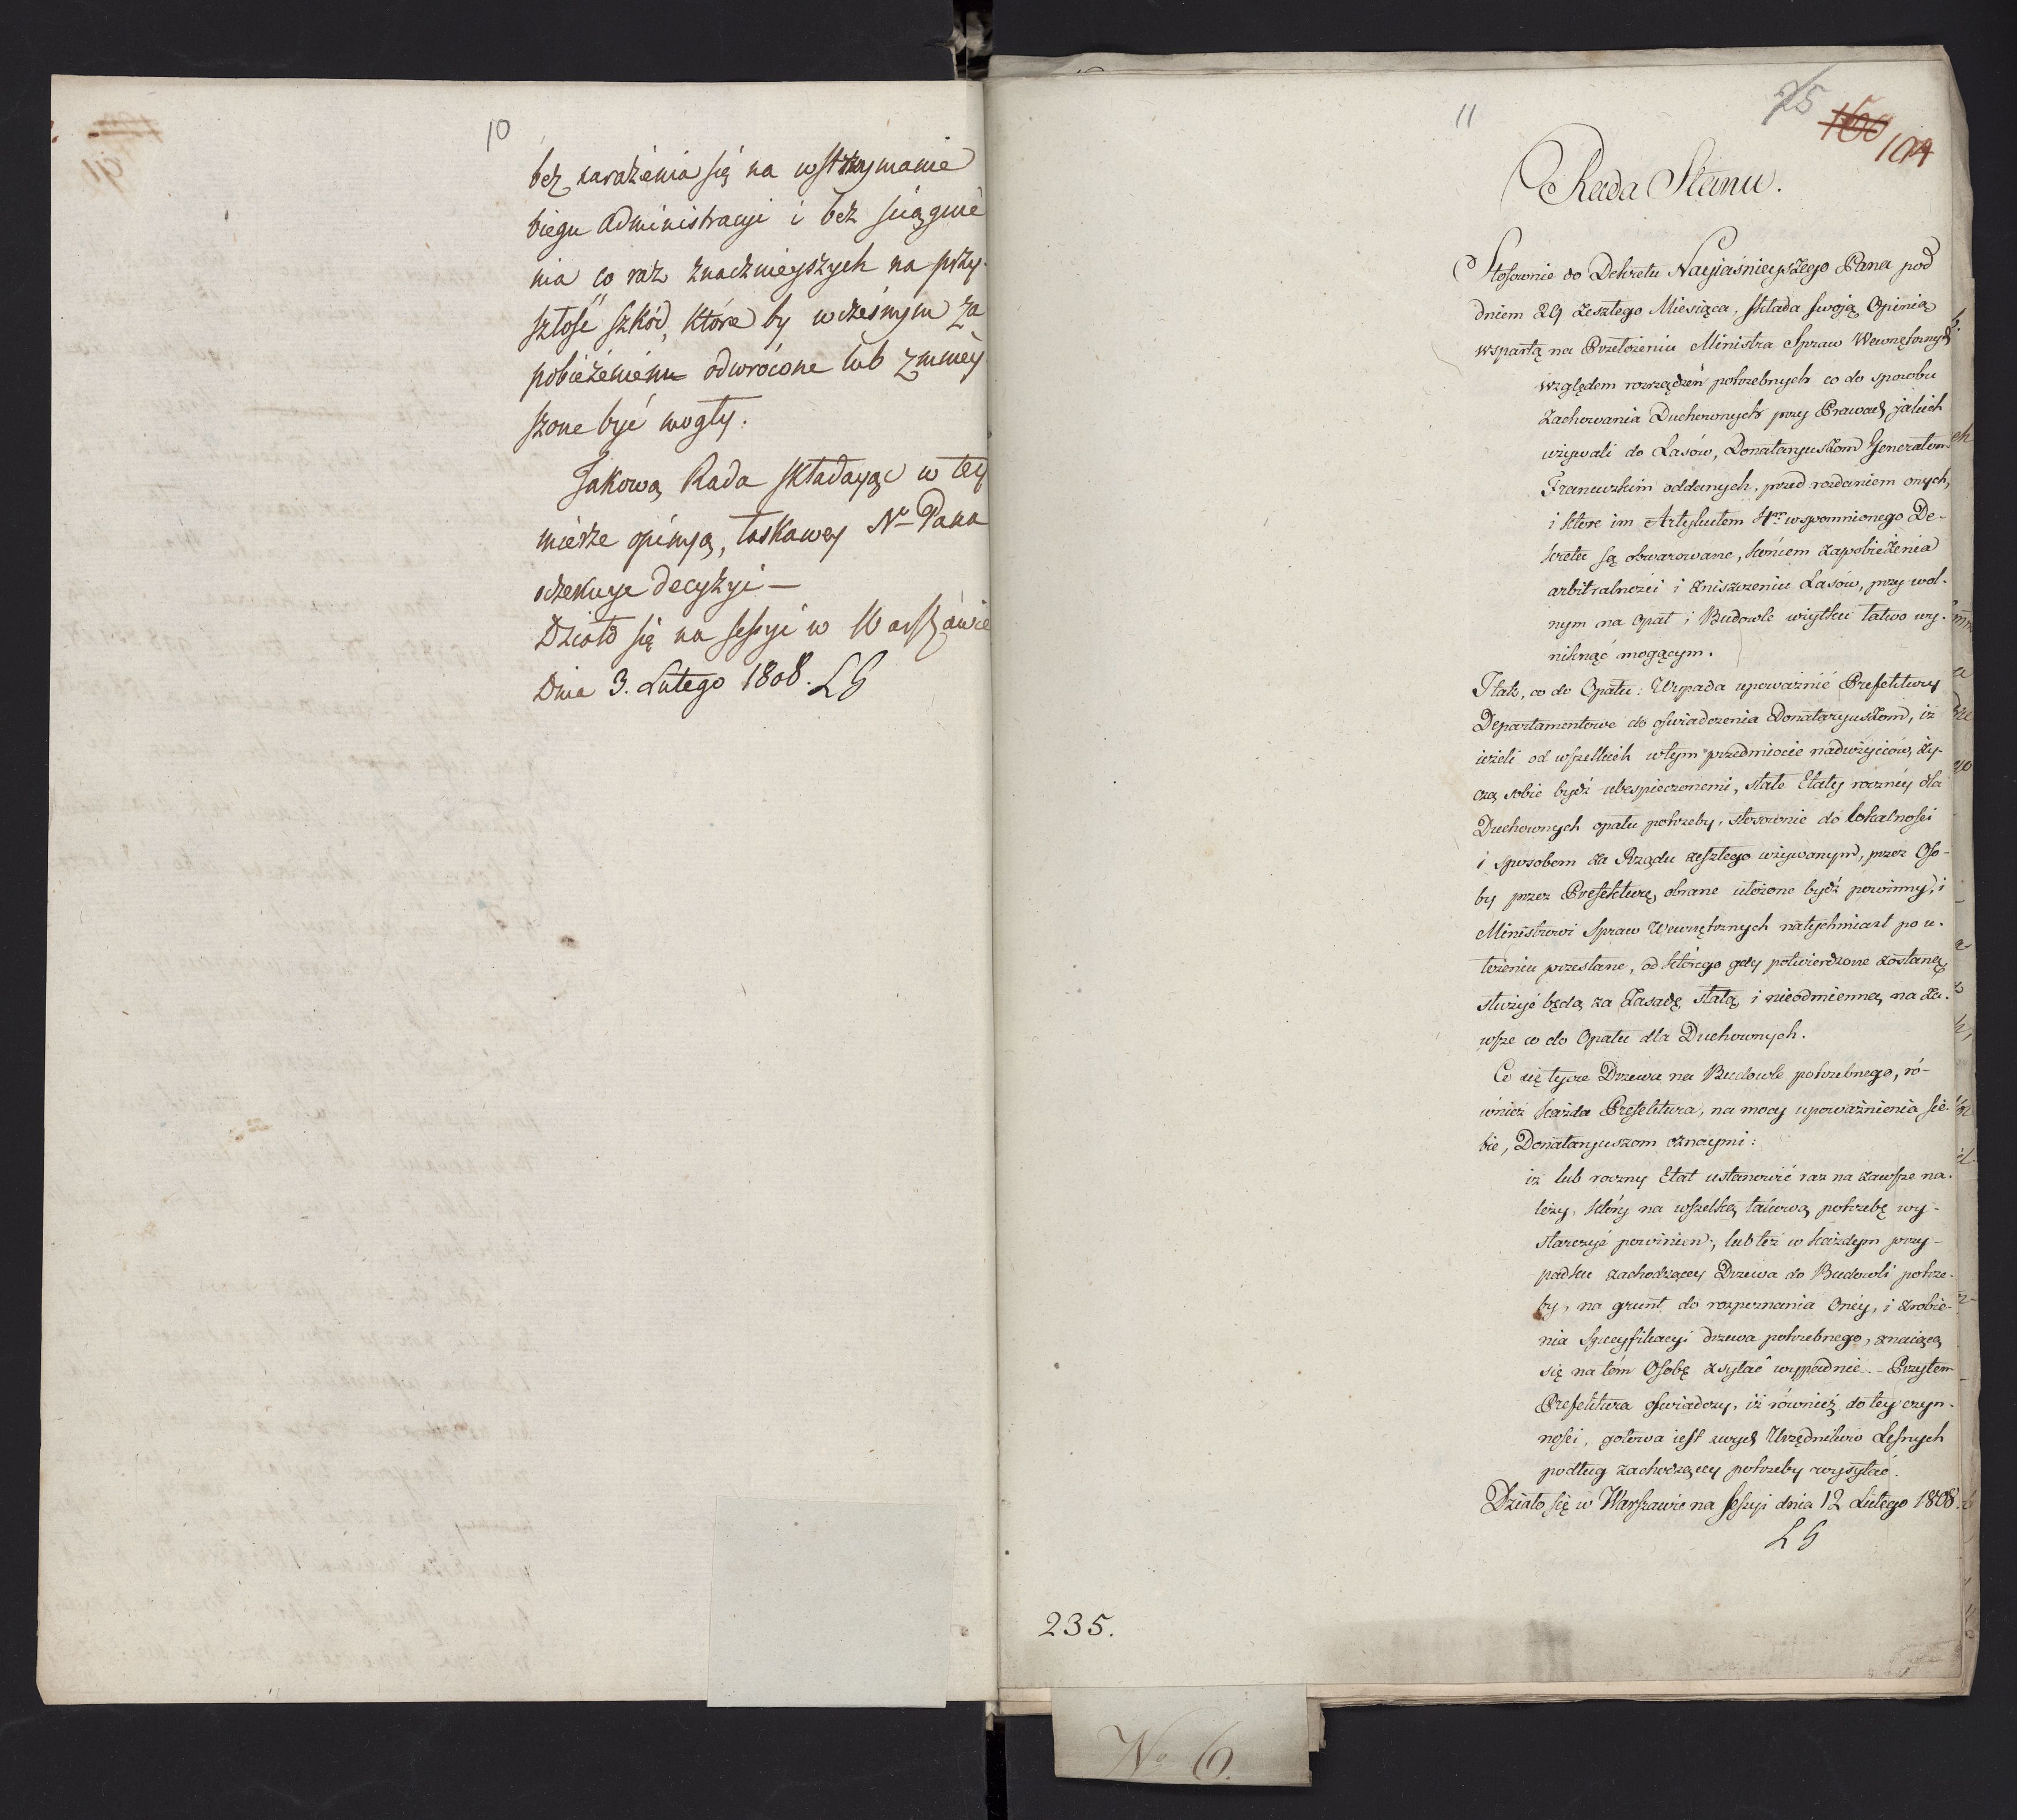 10
bez narażenia się na wstrzymanie
biegu administracyi i bez sciągnie
nia co raz znacznieyszych na przy-
szłość szkód, które by wczesnym za
pobieżeniem odwrócone lub zmniey
szone być mogły.
Jakową Rada składaiąc w tey
mierze opinyą, łaskawey Nº Pana
oczekuye decyzyi —
Działo się na Sessyi w Warszawie
Dnia 3. Lutego 1808. LG
11
75
160
104
Rada Stanu.
Stosownie do Dekretu Nayiaśnieyszego Pana pod
dniem 29 zeszłego Miesiąca, składa swoią Opinią
wspartą na Przełożeniu Ministra Spraw Wewnętrznych
względem rozrządzeń potrzebnych co do sposobu
zachowania Duchownych przy Prawach jakich
używali do Lasów, Donataryuszom Generałom
Francuzkim oddanych, przed rozdaniem onych,
i które im Artykułem 4m wspomnionego De-
kretu są obwarowane, końcem zapobieżenia
arbitralności i zniszczeniu Lasów, przy wol-
nym na Opał i Budowle wrytku łatwo wy-
niknąć mogącym.
I tak, co do Opału: Wypada upoważnić Prefektury
Departamentowe do oświadczenia Donataryuszom, iż
ieżeli od wszelkich w tym przedmiocie nadużyciów, ży-
czą sobie bydź ubespieczonemi, stałe Etaty roczney dla
Duchownych opału potrzeby, stosownie do lokalności
i sposobem za Rządu zeszłego używanym, przez Oso-
by przez Prefekturę obrane ułożone bydź powinny, i
Ministrowi Spraw Wewnętrznych natychmiast po u-
łożeniu przesłane, od którego gdy potwierdzone zostaną
służyć będą za Zasadę stałą i nieodmienną na za-
wsze co do Opału dla Duchownych.
Co się tycze Drzewa na Budowle potrzebnego, ró-
wnież każda Prefektura, na mocy upoważnienia sie-
bie, Donataryuszom oznaymi:
iż lub roczny Etat ustanowić raz na zawsze na-
leży, który na wszelką takową potrzebę wy-
starczyć powinien; lub też w każdym przy-
padku zachodzącey Drzewa do Budowli potrze-
by, na grunt do rozpoznania Oney, i zrobie-
nia Specyfikacyi drzewa potrzebnego, znaiącą
się na tém Osobę zsyłać wypadnie. - Przytem
Prefektura oświadczy, iż również do tey czyn-
ności, gotowa iest swych Urzędników Leśnych
podług zachodzącey potrzeby wysyłać.
Działo się w Warszawie na Sessyi dnia 12 Lutego 1808.
LG
235.
No 6.